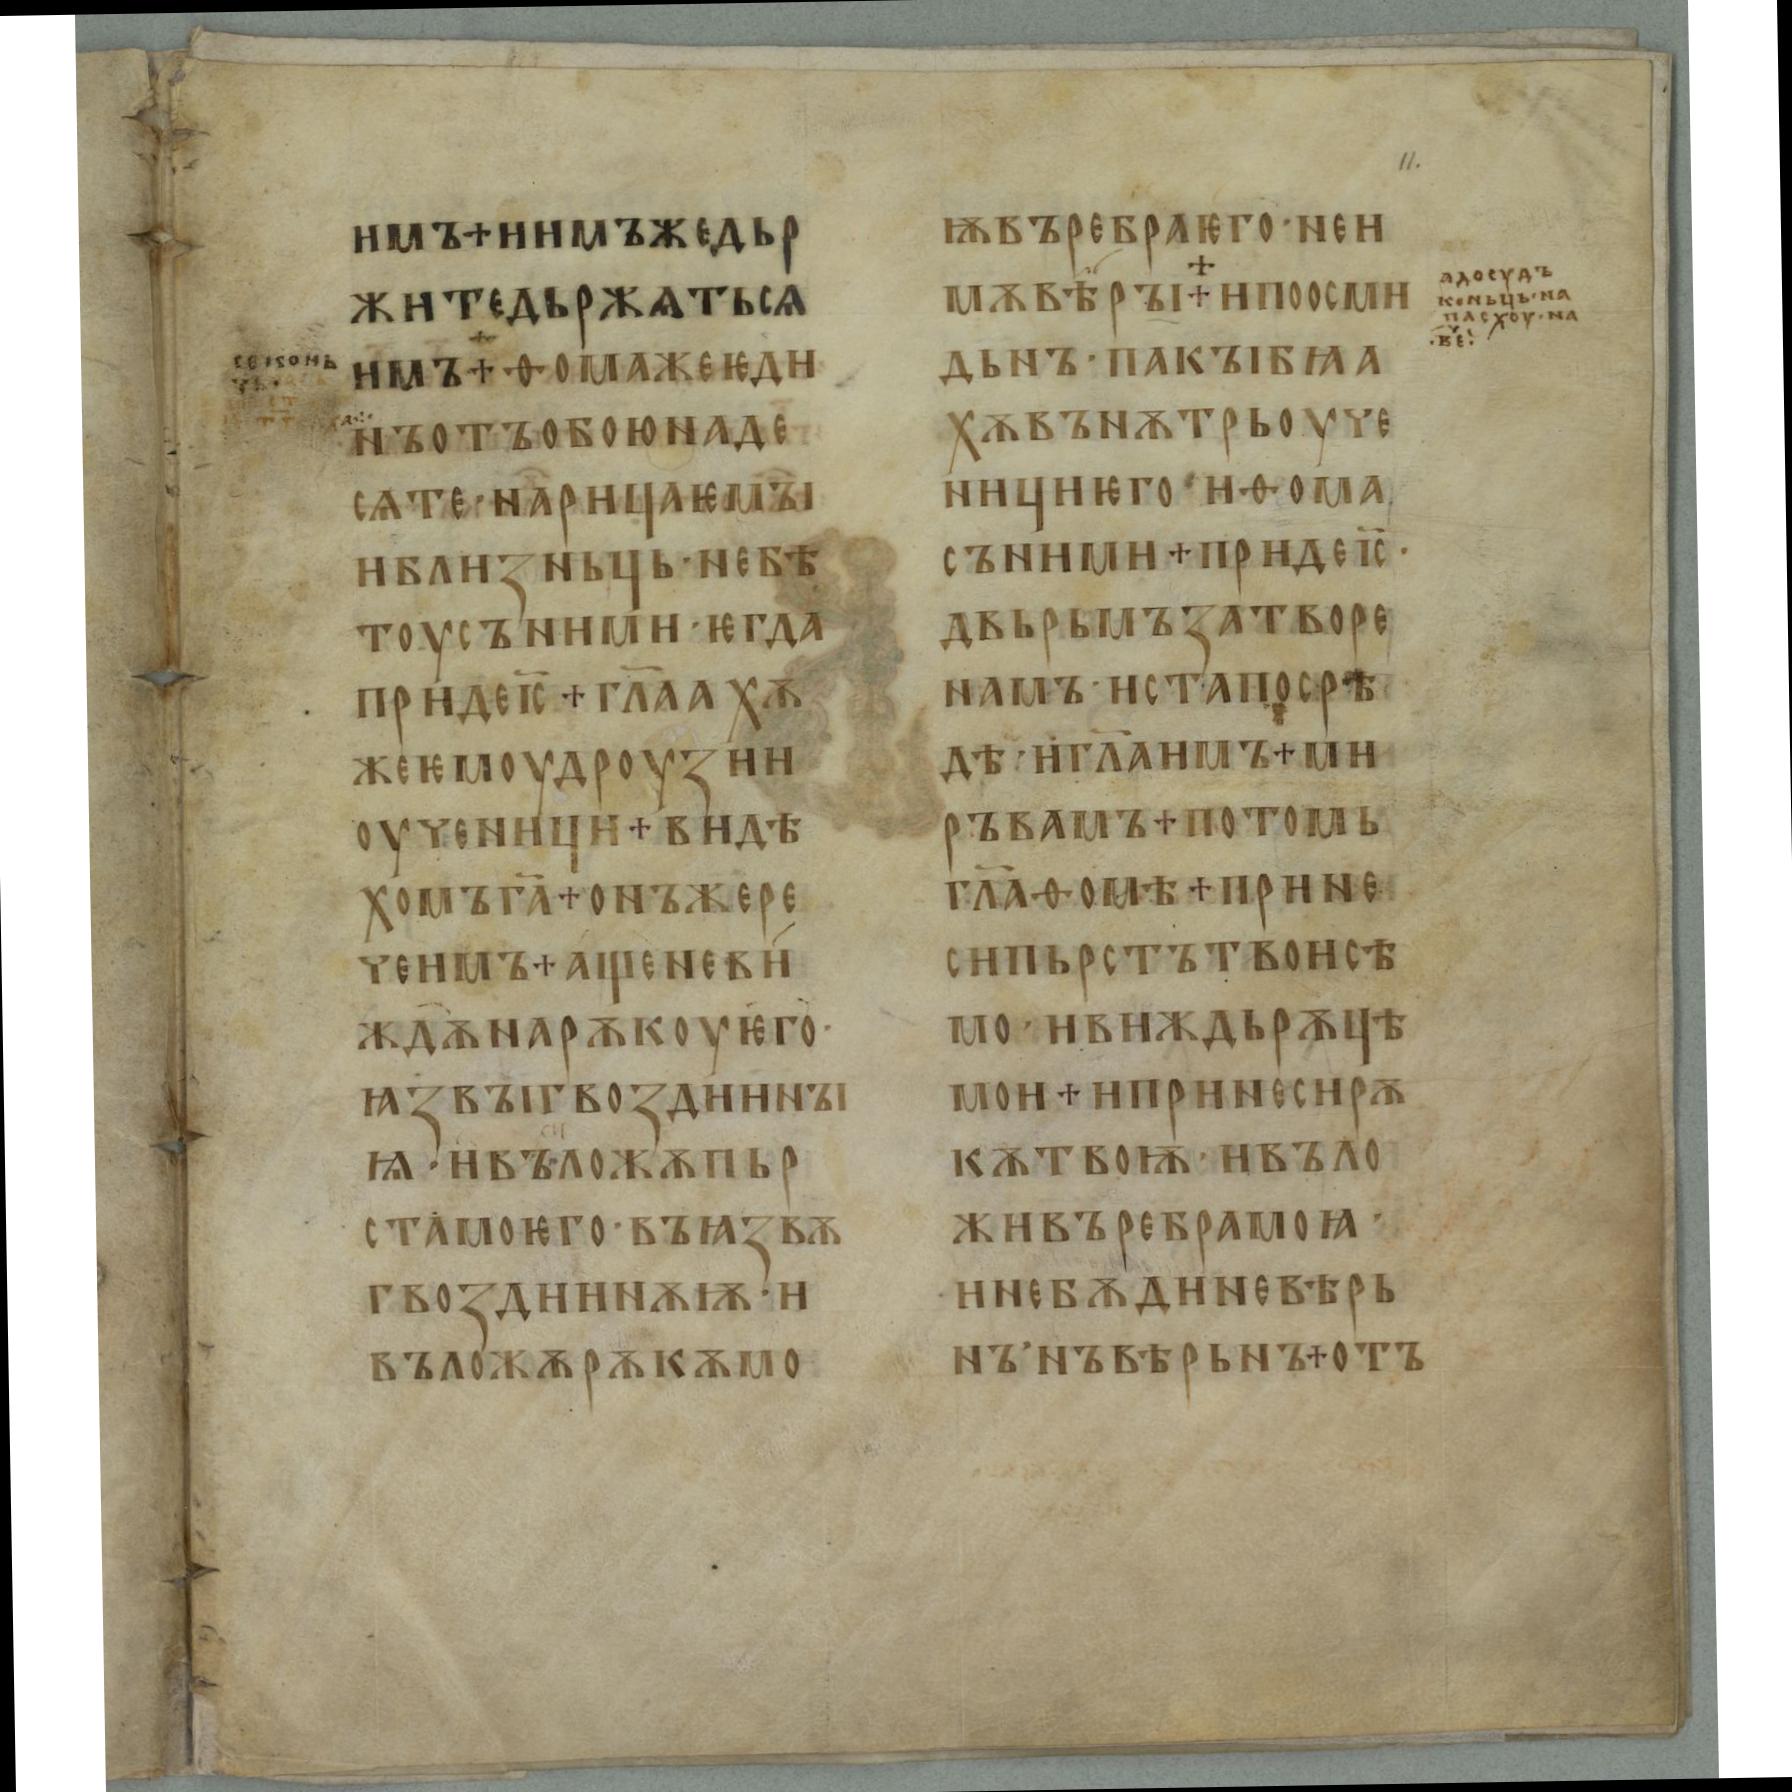 11.
имъ+инмъжедьр
житедьржѧтьсѧ
имъ+ѳомажеѥди
нъотъобоюнаде
сѧте·нарицаѥмꙑ
иблиꙁньць·небѣ
тоусъними·ѥгда
придеі҃с+гл҃аахѫ
жеѥмоудроуꙁии
оученици+видѣ
хомъга҃+онъжере
чеимъ+ащеневи
ждѫнарѫкоуѥго·
ꙗꙁвꙑгвоꙁдиинꙑ
ꙗ·ивъложѫпьр
стамоѥго·въꙗꙁвѫ
гвоꙁдиинѫѭ·и
въложѫрѫкѫмо
ѭвъребраѥго·неи
мѫвѣрꙑ+ипоосми
дьнъ·пакꙑбꙗа
хѫвънѫтрьоуче
ници ѥго·иѳома
съними+придеі҃с·
двьрьмъꙁатворе
намъ·истапосрѣ
дѣ·игл҃аимъ+ми
ръвамъ+потомь
гл҃аѳомѣ+прине
сипьрстътвоисѣ
мо·ивиждьрѫцѣ
мои+ипринесирѫ
кѫтвоѭ·ивъло
живъребрамоꙗ·
инебѫдиневѣрь
нъ'нъвѣрьнъ+отъ
адосудъ
коньць·на
пасхоу·на
·ве҃·